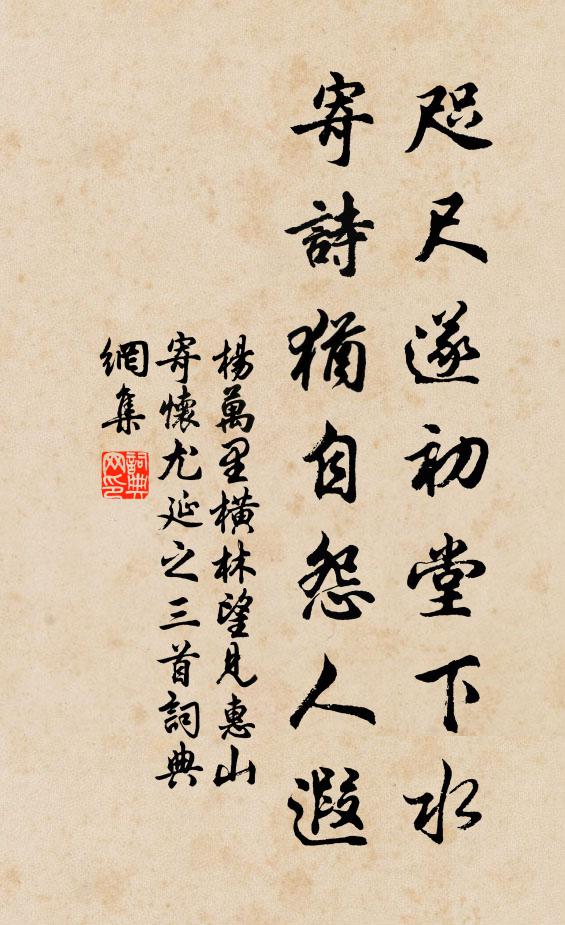 咫尺遂初堂下水
寄詩猶自怨人遐
楊萬里橫林望見惠山
寄懷尤延之三首詞典
網集
詞典
网印